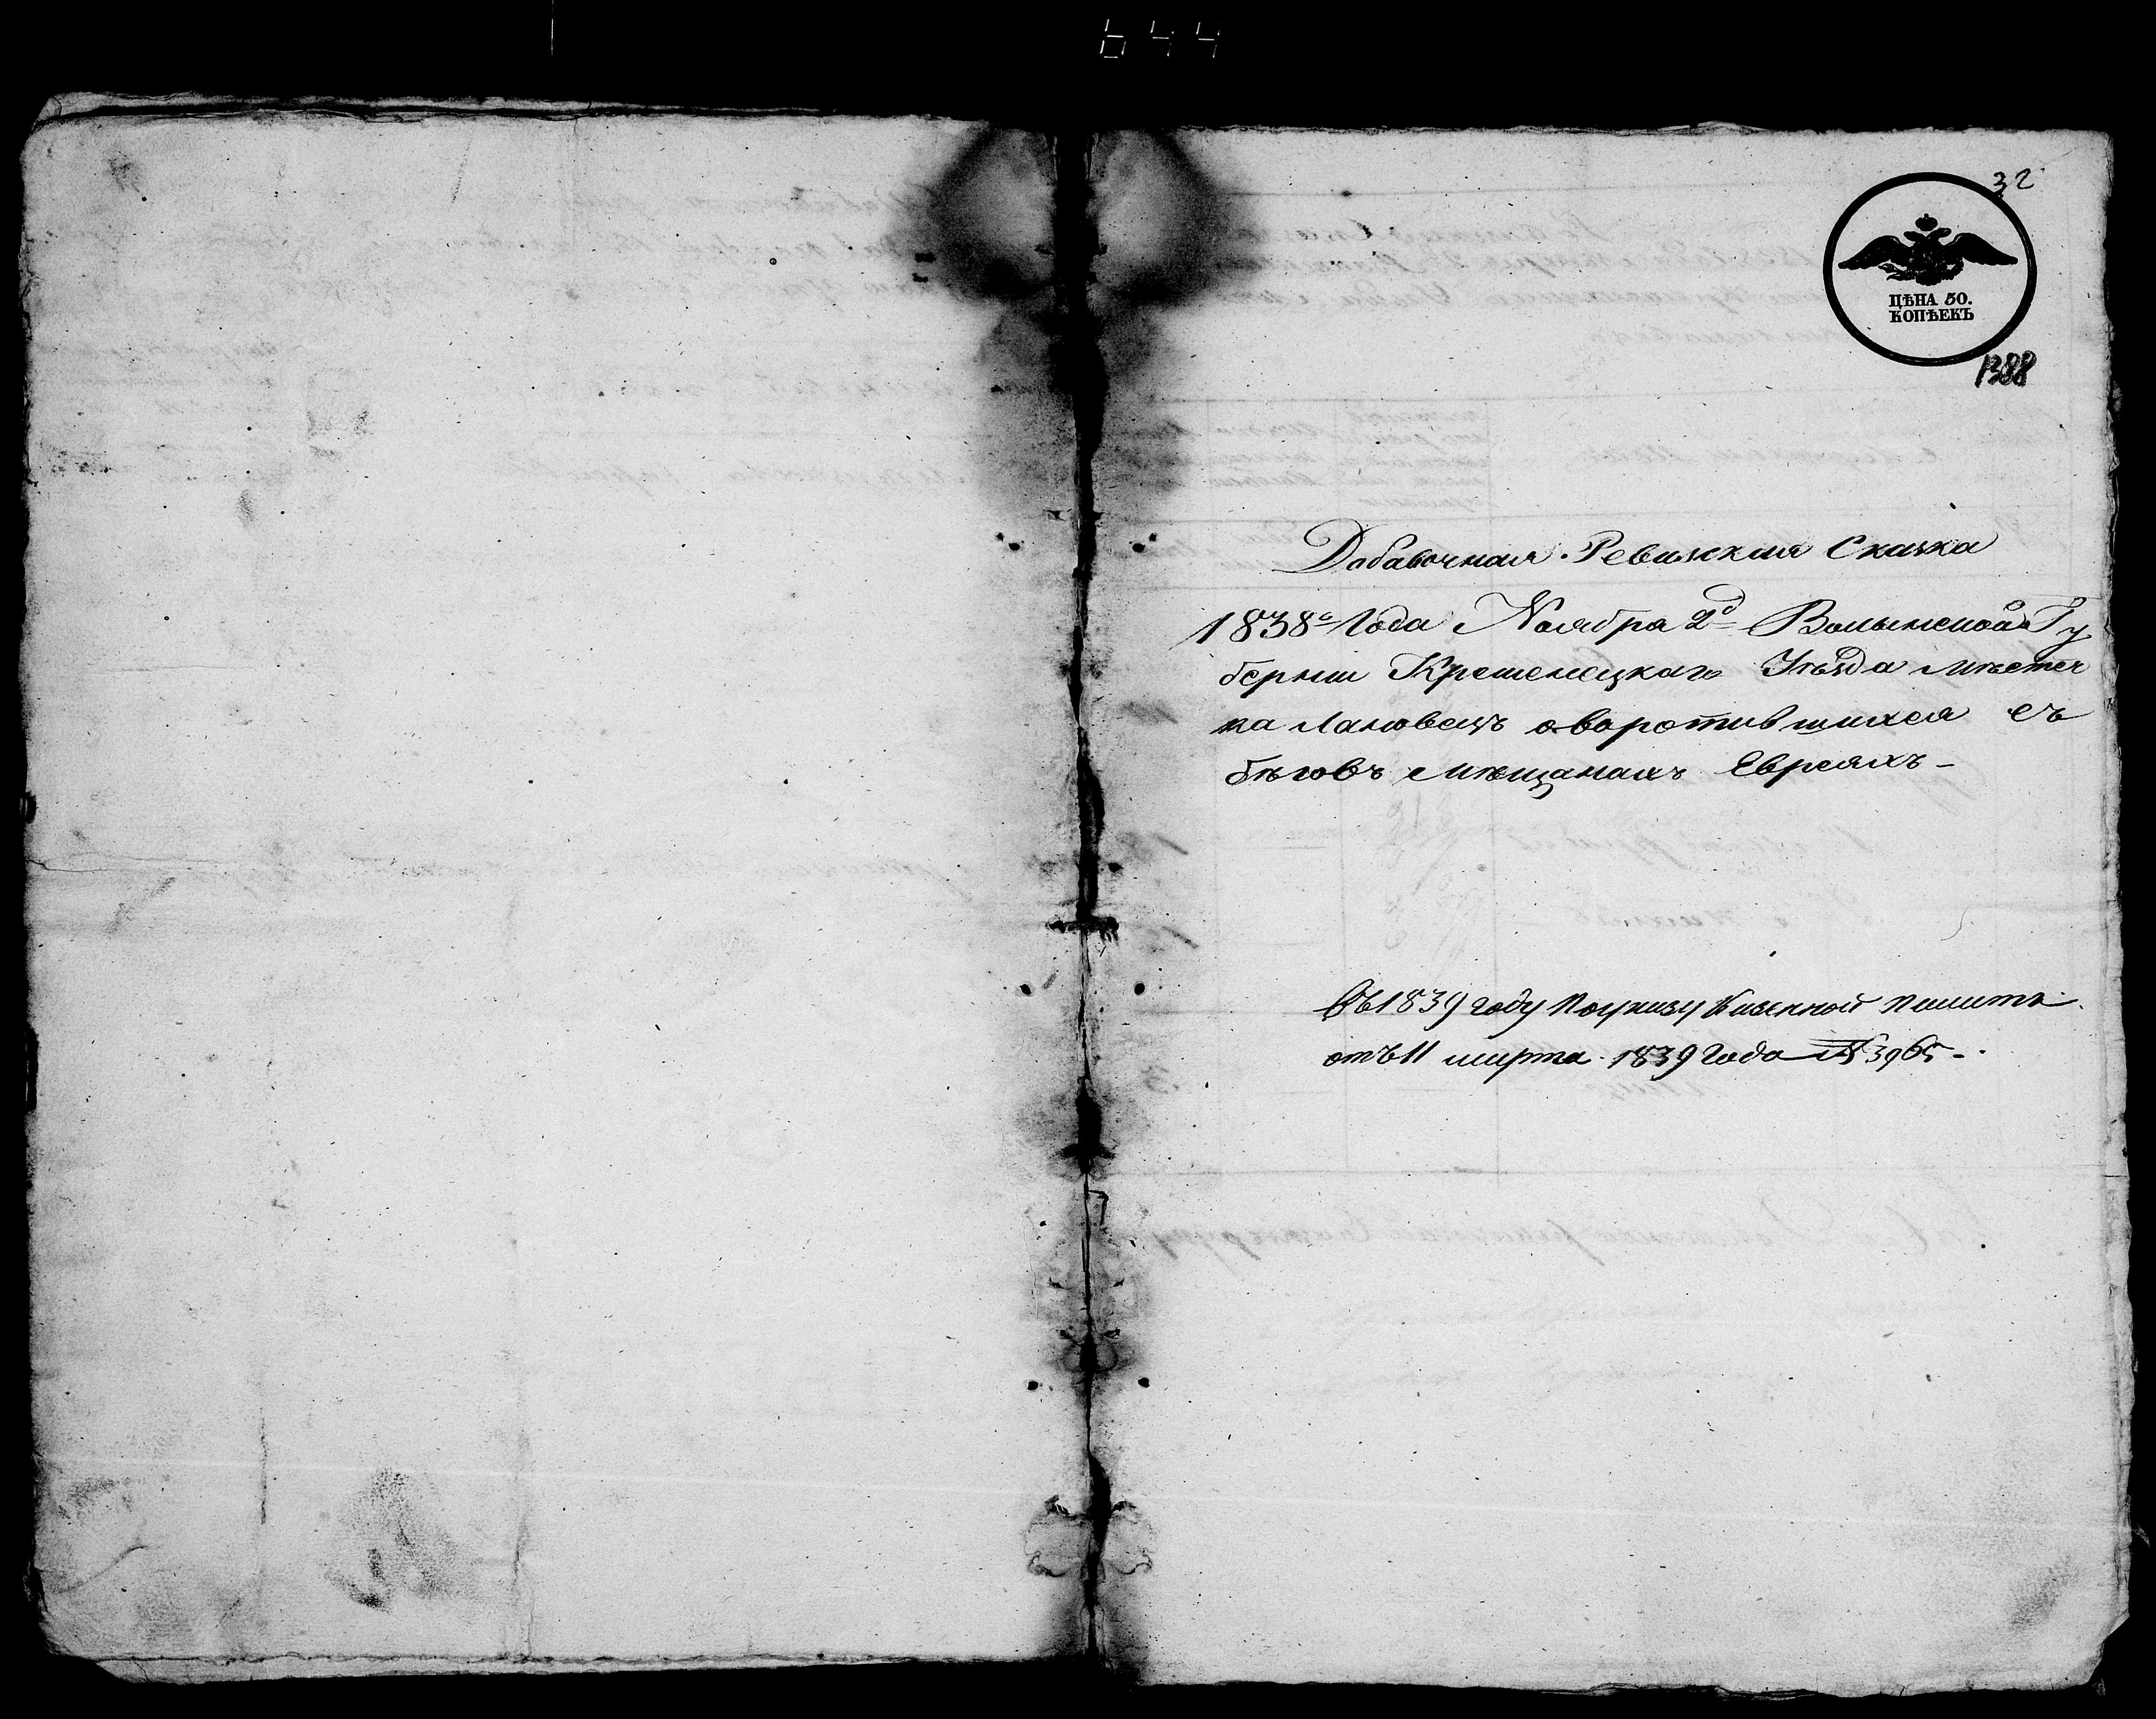 644
32
ЦѢНА 50.
КОПѢЕКЪ
1388
Добавочная Ревижская Скаска
1838го Года Ноября 2д Волынской Гу
берніи Кременецкаго Уѣзда мѣстеч
ка Лановецъ о воротившихся съ
бѣговъ мѣщанахъ Евреяхъ -
Въ 1839 году по указу Казенной палаты
отъ 11 марта 1839 Года № 3965 -